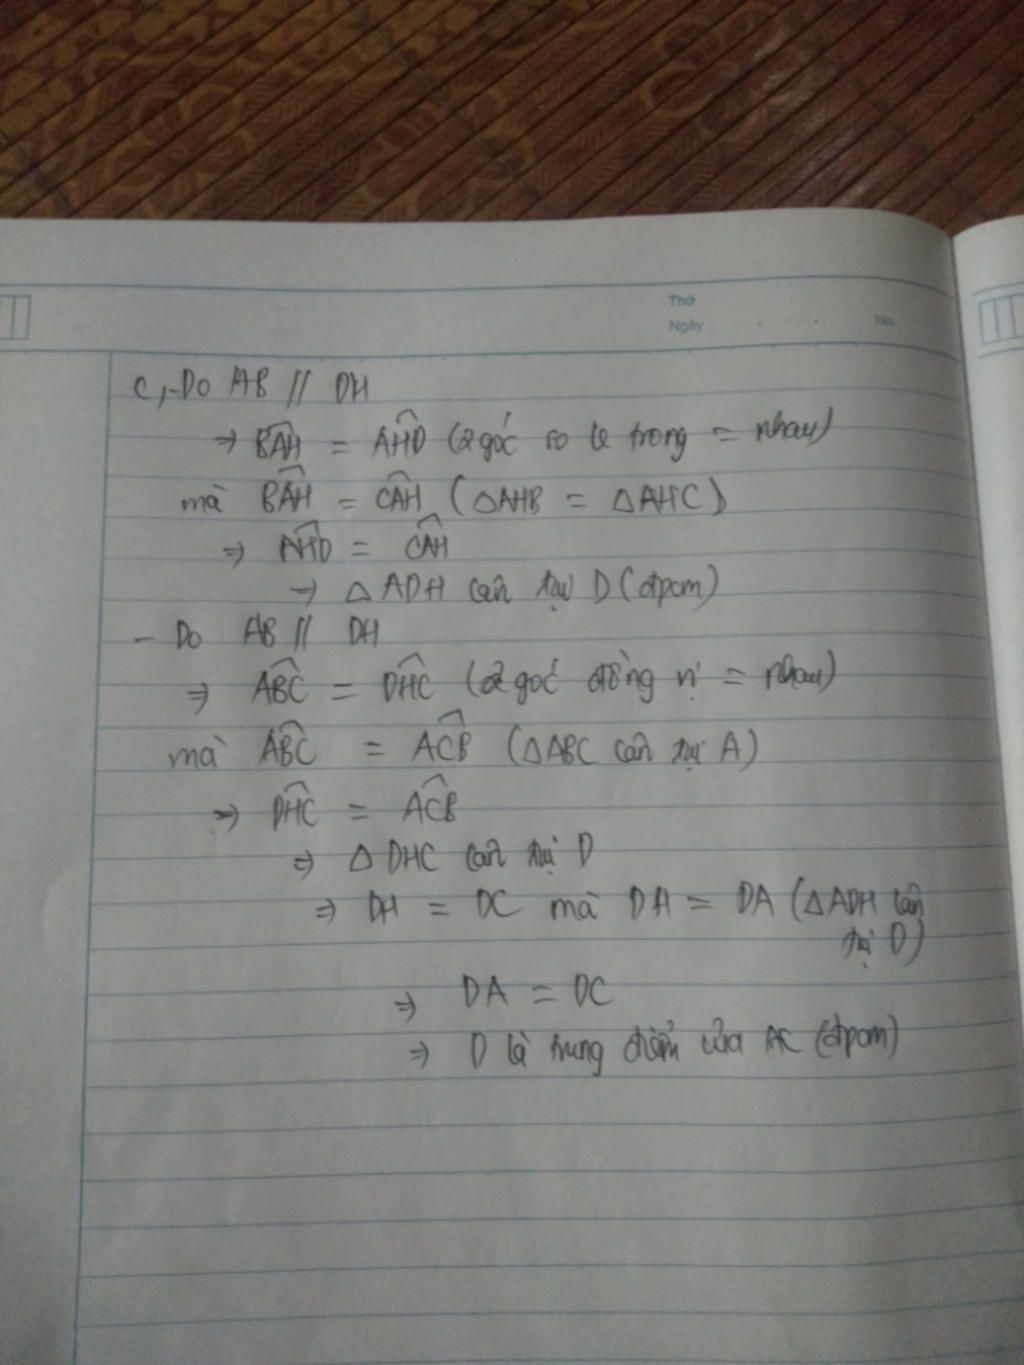 Thứ
Ngày . . No.
c, - Do AB // DH
⇒ BAH = AHD (2 góc so le trong = nhau)
mà BAH = CAH (△AHB = △AHC)
⇒ AHD = CAH
⇒ △ADH cân tại D (đpcm)
- Do AB // DH
⇒ ABC = DHC (2 góc đồng vị = nhau)
mà ABC = ACB (△ABC cân tại A)
⇒ DHC = ACB
⇒ △DHC cân tại D
⇒ DH = DC mà DH = DA (△ADH cân
tại D)
⇒ DA = DC
⇒ D là trung điểm của AC (đpcm)